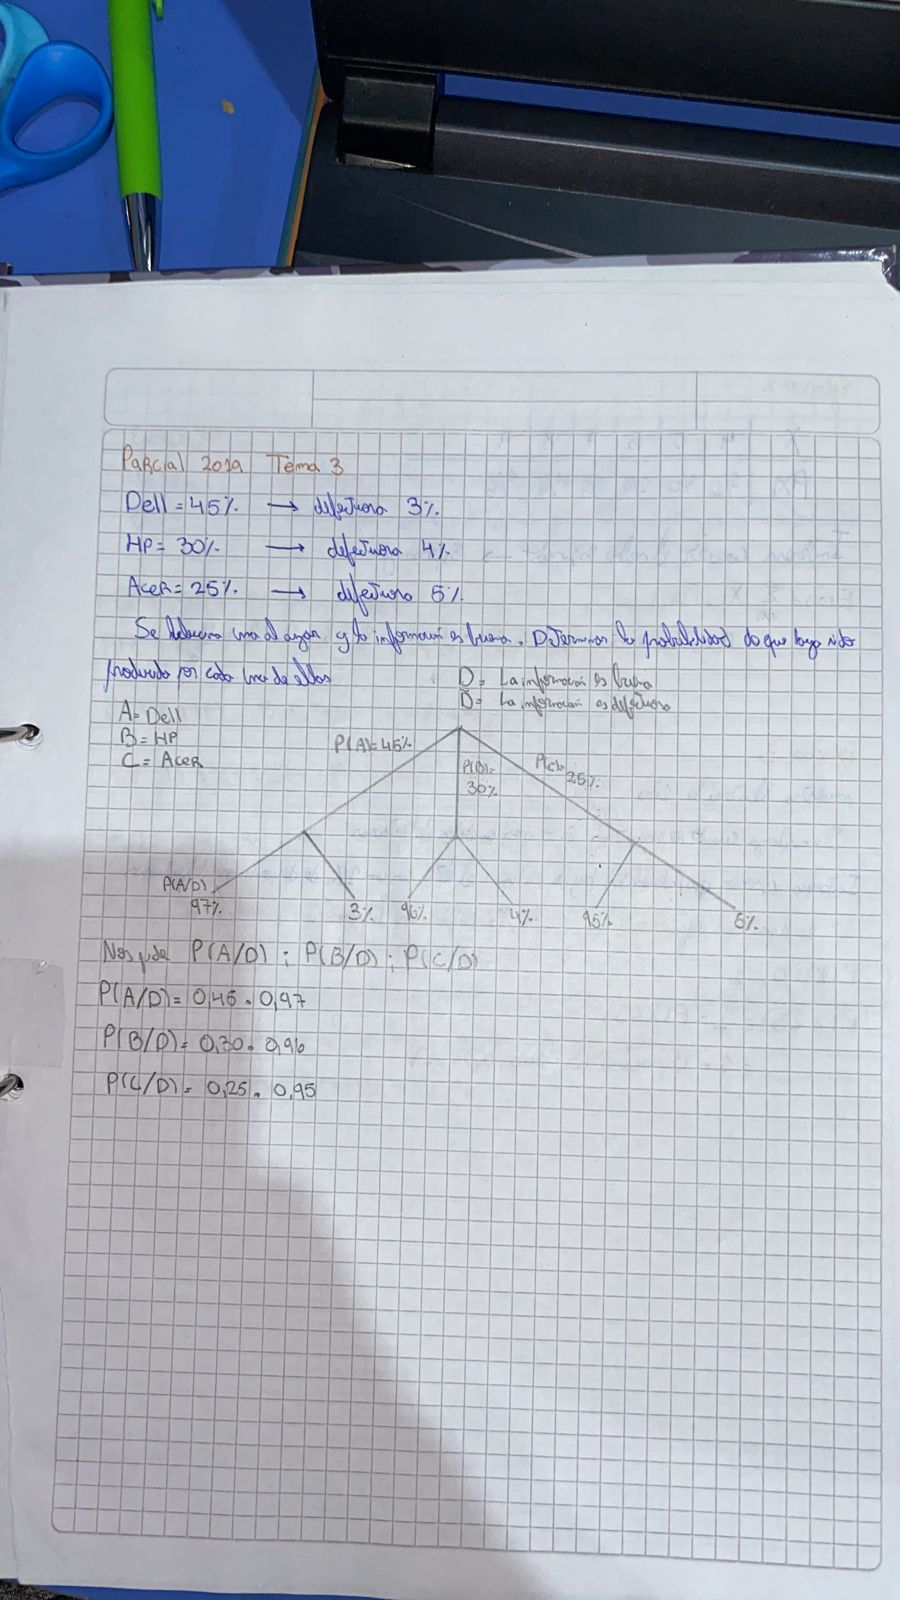 Parcial 2019 Tema 3
Dell = 45% → defectuosa 3%
HP = 30% → defectuosa 4%
Acer = 25% → defectuosa 5%
Se selecciona una al azar y la información es buena. Determinar la probabilidad de que haya sido
producida por cada una de ellas
D = La información es buena
D̄ = La información es defectuosa
A = Dell
B = HP
C = Acer
P(A) = 45%
P(B) =
30%
P(C) =
25%
P(A/D)
97% 3% 96% 4% 95% 5%
Nos pide P(A/D) ; P(B/D) ; P(C/D)
P(A/D) = 0,45 . 0,97
P(B/D) = 0,30 . 0,96
P(C/D) = 0,25 . 0,95